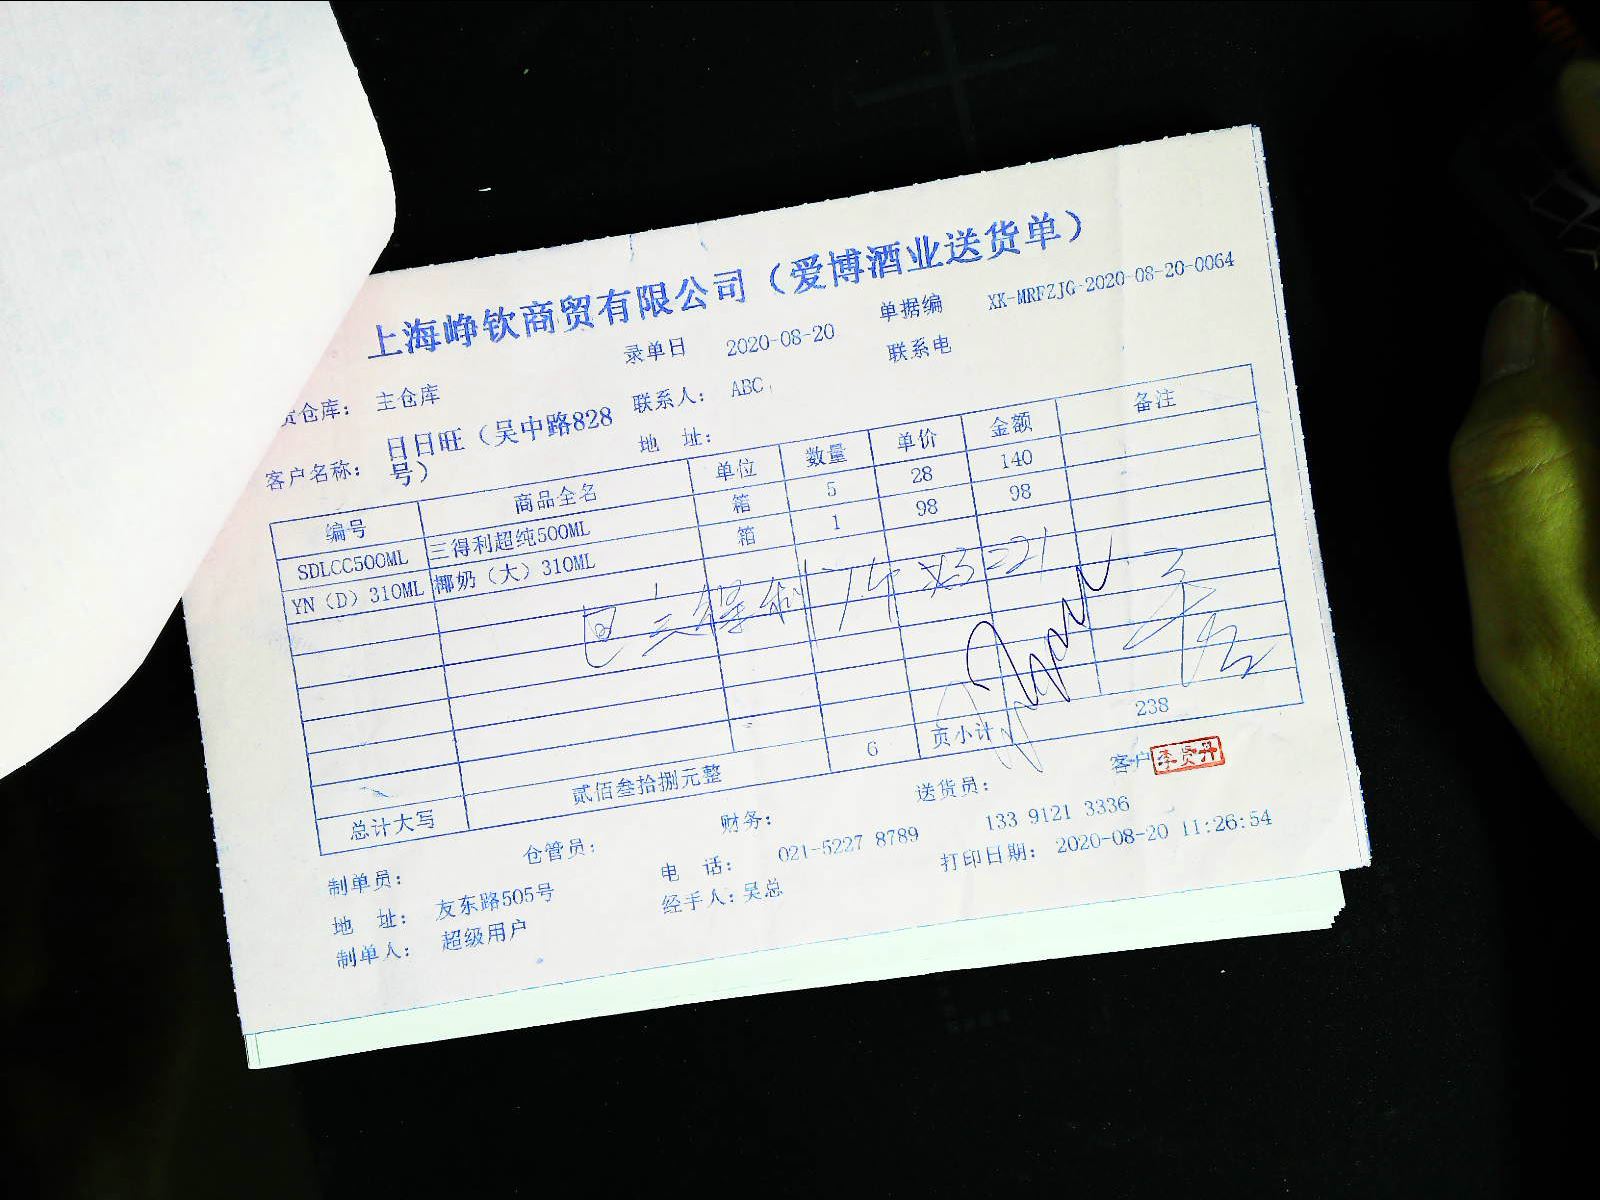 上海峥钦商贸有限公司（爱博酒业送货单）
录单日 2020-08-20 单据编 XK-MRFZJG-2020-08-20-0064
货仓库： 主仓库 联系人： ABC 联系电
客户名称： 日日旺（吴中路828号） 地 址：
编号 商品全名 单位 数量 单价 金额 备注
SDLCC500ML 三得利超纯500ML 箱 5 28 140
YN（D）310ML 椰奶（大）310ML 箱 1 98 98
6 页小计 238
总计大写 贰佰叁拾捌元整
制单员： 仓管员： 财务： 送货员： 客户 李贤升
地 址： 友东路505号 电 话： 021-5227 8789 133 9121 3336
制单人： 超级用户 经手人：吴总 打印日期： 2020-08-20 11:26:54